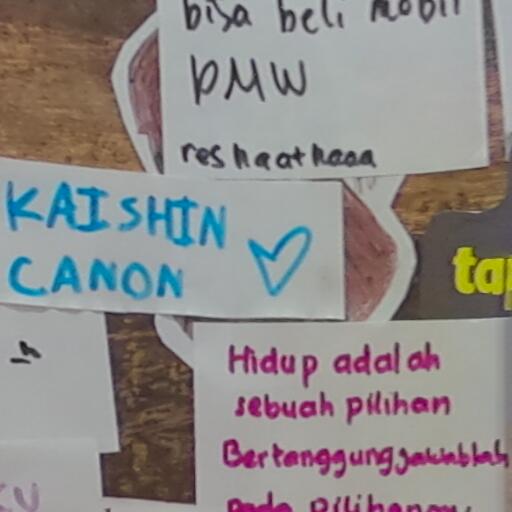 bisa beli mobil
BMW
reshaathaaa
KAISHIN
CANON
tap
Hidup adalah
sebuah pilihan
Bertanggungjawablah
pada pilihanmu